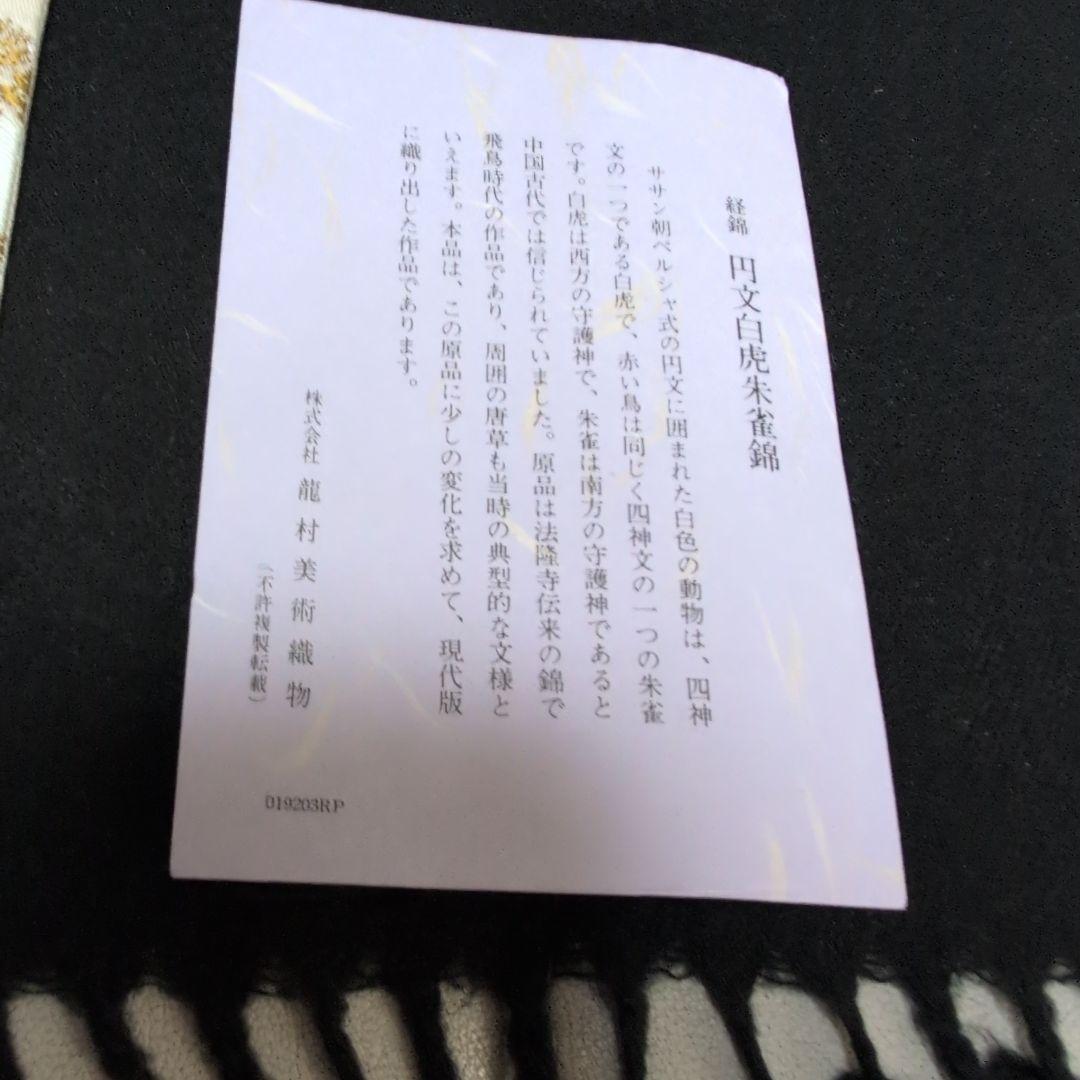 経錦 円文白虎朱雀錦
ササン朝ペルシャ式の円文に囲まれた白色の動物は、四神
文の一つである白虎で、赤い鳥は同じく四神文の一つの朱雀
です。白虎は西方の守護神で、朱雀は南方の守護神であると
中国古代では信じられていました。原品は法隆寺伝来の錦で
飛鳥時代の作品であり、周囲の唐草も当時の典型的な文様と
いえます。本品は、この原品に少しの変化を求めて、現代版
に織り出した作品であります。
株式会社 龍村美術織物
(不許複製転載)
019203RP